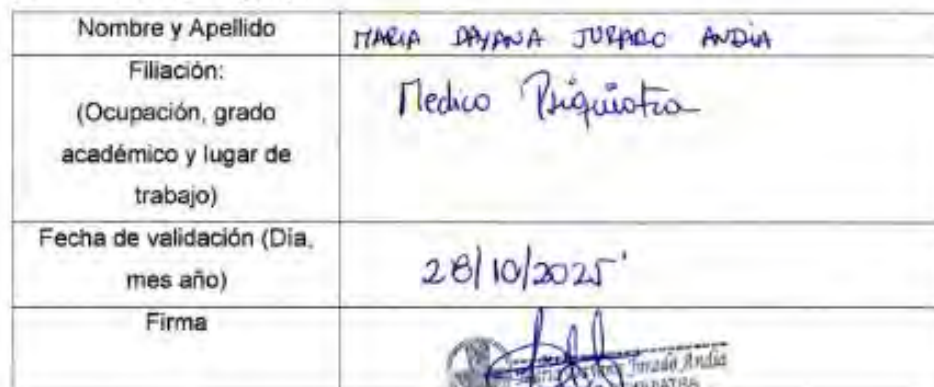 Nombre y Apellido
MARIA DAYANA JURADO ANDIA
Filiación:
(Ocupación, grado
académico y lugar de
trabajo)
Medico Psiquiatra
Fecha de validación (Día,
mes año)
28/10/2025
Firma
Maria Dayana Jurado Andia